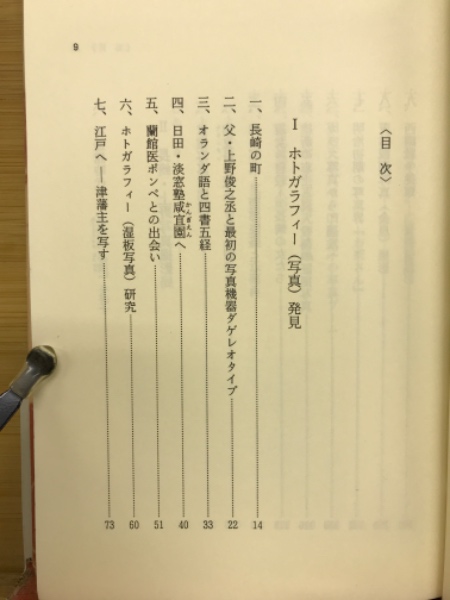 〈目次〉
Ⅰ ホトガラフィー（写真）発見
一、長崎の町 14
二、父・上野俊之丞と最初の写真機器ダゲレオタイプ 22
三、オランダ語と四書五経 33
四、日田・淡窓塾咸宜園へ 40
かんぎえん
五、蘭館医ポンペとの出会い 51
六、ホトガラフィー（湿板写真）研究 60
七、江戸へ——津藩主を写す 73
9